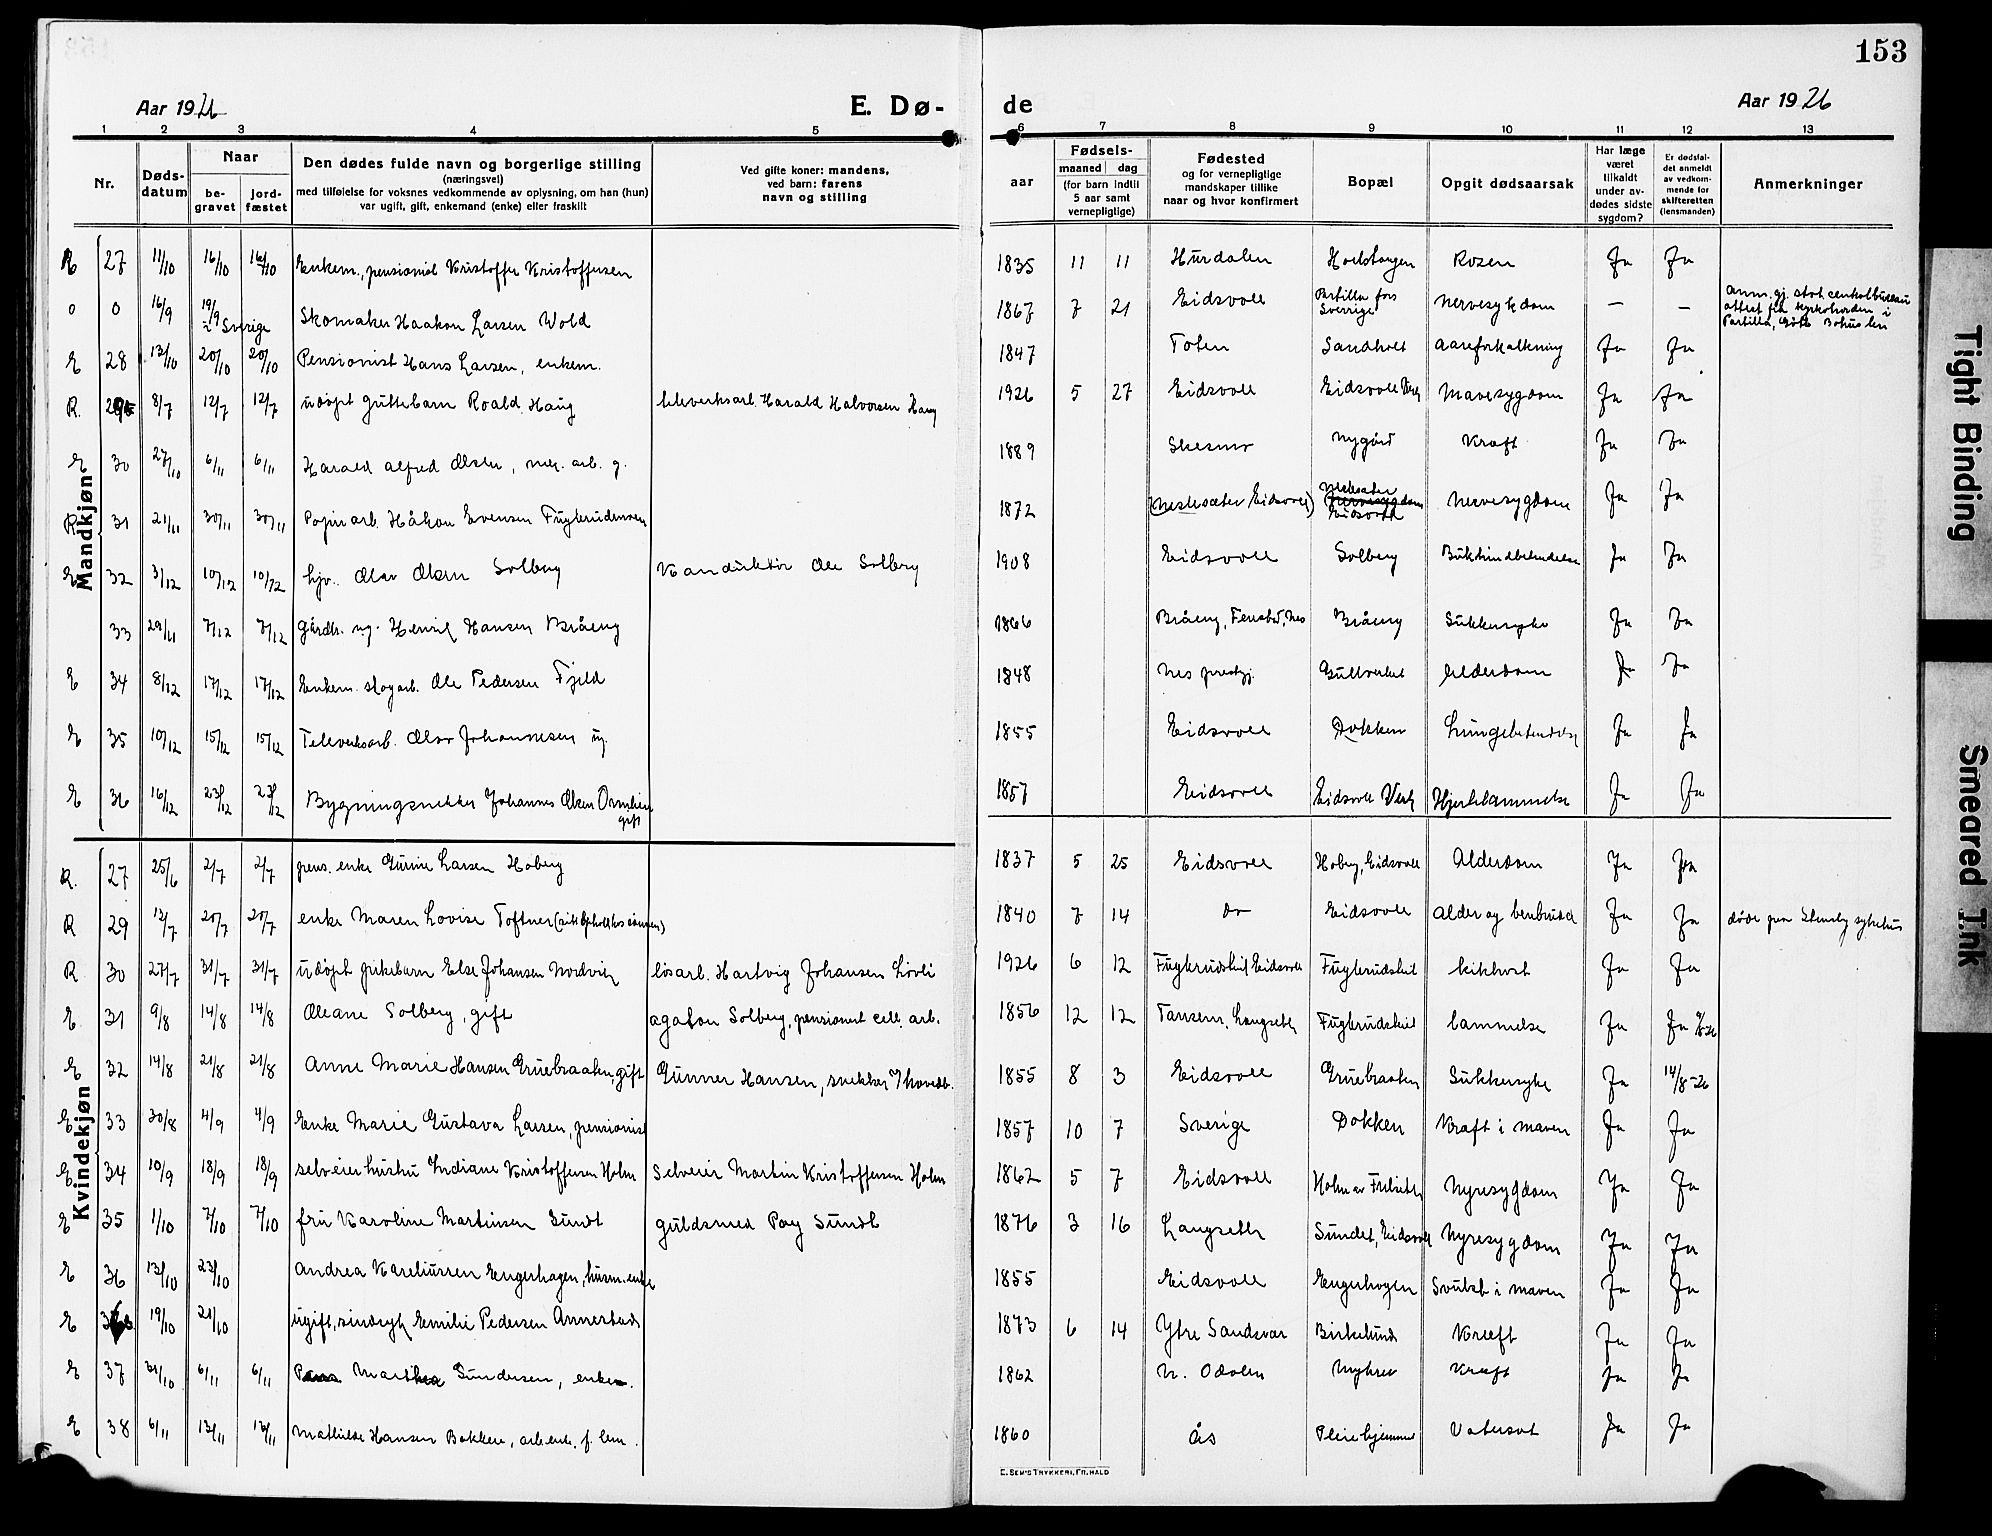 153
Aar 1926 E. Dø- de Aar 1926
1 2 3 4 5 6 7 8 9 10 11 12 13
Nr.
Døds-
datum
Naar
be-
gravet
jord-
fæstet
Den dødes fulde navn og borgerlige stilling
(næringsvei)
med tilføielse for voksnes vedkommende av oplysning, om han (hun)
var ugift, gift, enkemand (enke) eller fraskilt
Ved gifte koner: mandens,
ved barn: farens
navn og stilling
aar
Fødsels-
maaned dag
(for barn indtil
5 aar samt
vernepligtige)
Fødested
og for vernepligtige
mandskaper tillike
naar og hvor konfirmert
Bopæl
Opgit dødsaarsak
Har læge
været
tilkaldt
under av-
dødes sidste
sygdom?
Er dødsfal-
det anmeldt
av vedkom-
mende for
skifteretten
(lensmanden)
Anmerkninger
Mandkjøn
R 27 11/10 16/10 16/10 Enkem., pensionist Kristoffer Kristoffersen 1835 11 11 Hurdalen Rosen Ja Ja
0 0 16/9 19/9 i Sverige Skomaker Haakon Larsen Wold 1867 7 21 Eidsvoll Partilla fors Sverige Nervesykdom — —
E 28 13/10 20/10 20/10 Pensionist Hans Larsen, enkem. 1847 Toten Sandholt Aareforkalkning Ja Ja
R. 29 8/7 12/7 12/7 udøpt guttebarn Roald Haug Harald Halvorsen Haug 1926 5 27 Eidsvoll Eidsvoll Verk Mavesygdom Ja Ja
E 30 27/10 6/11 6/11 Harald Alfred Olsen, arb. g. 1889 Skesmo Nygård Kræft Ja Ja
R 31 21/11 30/11 30/11 Papirarb. Håkon Evensen 1872 (Neslesæter Eidsvoll) Neslesæter Eidsvoll Nervesygdom Ja Ja
E 32 3/12 10/12 10/12 Olav Olsen Solberg Ole Solberg 1908 Eidsvoll Solberg Bukhindebetendelse Ja Ja
33 29/11 7/12 7/12 gårdbr. ug. Henrik Hansen Bråeng 1866 Bråeng, Nes Bråeng Sukkersyke Ja Ja
E 34 8/12 17/12 17/12 Enkem. skogarb. Ole Pedersen Fjeld 1848 Nes prestgj. Gullverket Alderdom Ja Ja
E 35 10/12 15/12 15/12 Olav Johannesen ug. 1855 Eidsvoll Dokken Lungebetendelse Ja Ja
E 36 16/12 23/12 23/12 Bygningsnekker Johannes Olsen Ormlien gift 1857 Eidsvoll Eidsvoll Verk Hjertelammelse Ja Ja
Kvindekjøn
R. 27 25/6 2/7 2/7 pens. enke Gunine Larsen Hoberg 1837 5 25 Eidsvoll Hoberg, Eidsvoll Alderdom Ja Ja
R 29 12/7 20/7 20/7 enke Maren Lovise Toftner 1840 7 14 do Eidsvoll Alder og benbrudd Ja Ja døde paa Stensby sykehus
R. 30 27/7 31/7 31/7 udøpt pikebarn Else Johansen Nordvik løsarb. Hartvig Johansen Lovli 1926 6 12 Fuglerudskil Eidsvoll Fuglerudskil kikhost Ja Ja
E. 31 9/8 14/8 14/8 Oleane Solberg, gift Agaton Solberg, pensionert cell. arb. 1856 12 12 Langseth Fuglerudskil Lammelse Ja Ja
E 32 14/8 21/8 21/8 Anne Marie Hansen Gruebraaten, gift Gunner Hansen, snekker 1855 8 3 Eidsvoll Gruebraaten Sukkersyke Ja 14/8-26
E 33 30/8 4/9 4/9 Enke Marie Gustava Larsen, pensionist 1857 10 7 Sverige Dokken Kræft i maven Ja Ja
E 34 10/9 18/9 18/9 selveier hustru Indiane Kristoffersen Holm Selveier Martin Kristoffersen Holm 1862 5 7 Eidsvoll Nyresygdom Ja Ja
E 35 1/10 7/10 7/10 fru Karoline Martinsen Sundt guldsmed Pay Sundt 1876 3 16 Langseth Sundet, Eidsvoll Nyresygdom Ja Ja
E 36 13/10 23/10 Andrea Kareliussen Engerhagen, husm. enke 1855 Eidsvoll Engerhagen Svulst i maven Ja Ja
E 19/10 21/10 ugift, sindsyk Emilie Pedersen Annestad 1873 6 14 Ytre Sandsvær Birkelund Kræft Ja Ja
E 37 31/10 6/11 6/11 Martha Gundersen, enke. 1862 N. Odalen Kræft Ja Ja
E 38 6/11 13/11 13/11 Mathilde Hansen Bakken, 1860 Ås Pleiehjemmet Vatersot Ja Ja
C. Sem's Trykkeri, Fr.hald
Tight Binding
Smeared Ink